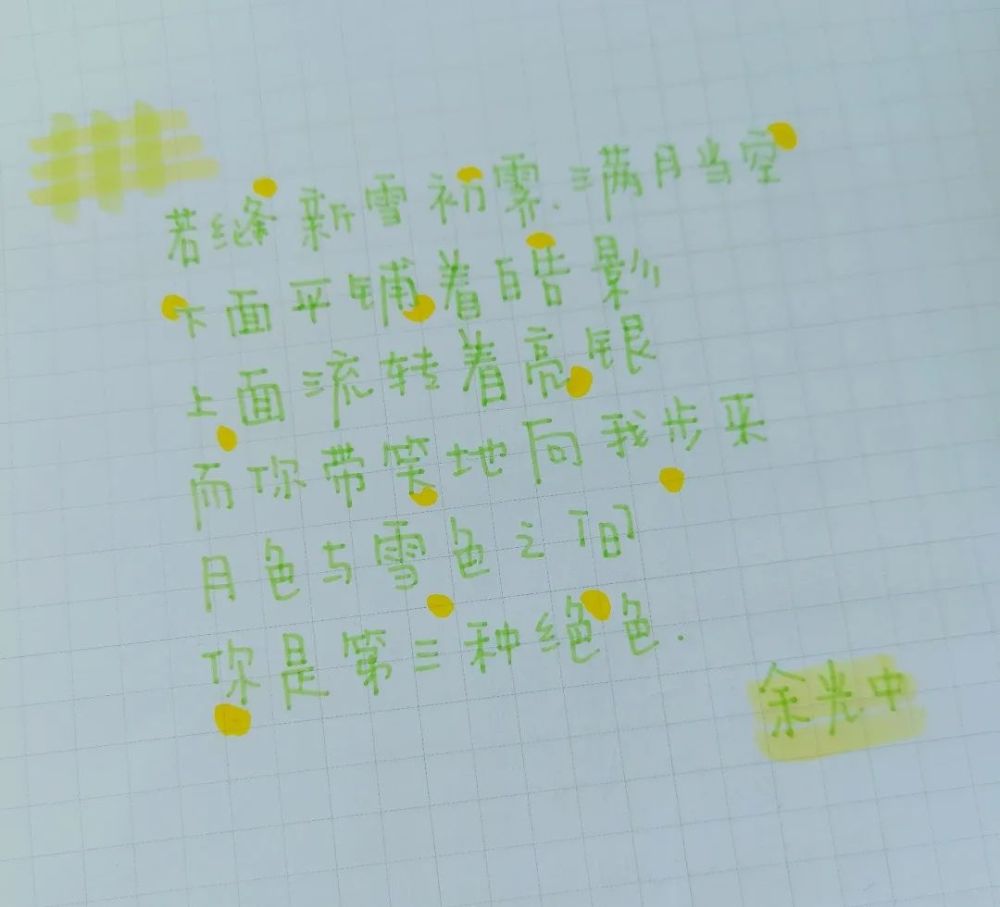 若缝新雪初霁.满月当空
下面平铺着皓影
上面流转着亮银
而你带笑地向我步来
月色与雪色之间
你是第三种绝色.
余光中